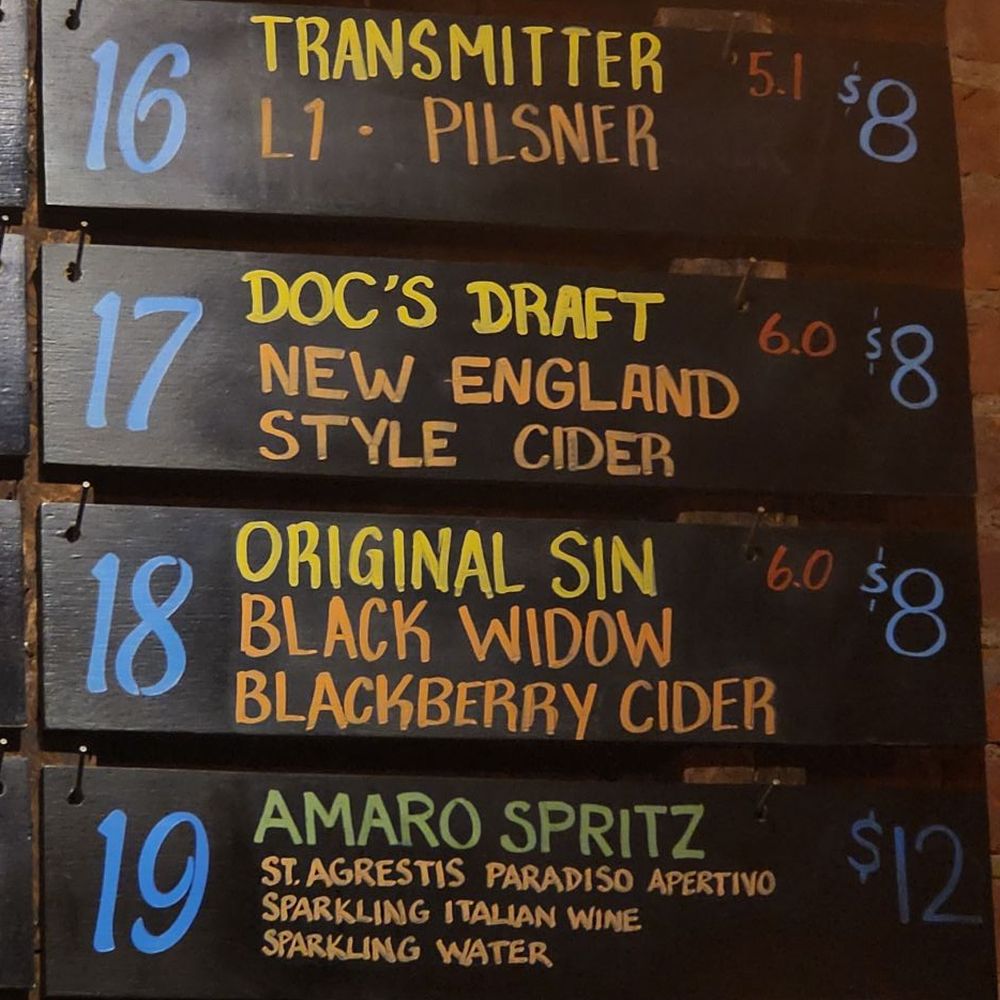 16 TRANSMITTER 5.1 $8
L1 · PILSNER
17 DOC'S DRAFT 6.0 $8
NEW ENGLAND
STYLE CIDER
18 ORIGINAL SIN 6.0 $8
BLACK WIDOW
BLACKBERRY CIDER
19 AMARO SPRITZ $12
ST. AGRESTIS PARADISO APERTIVO
SPARKLING ITALIAN WINE
SPARKLING WATER